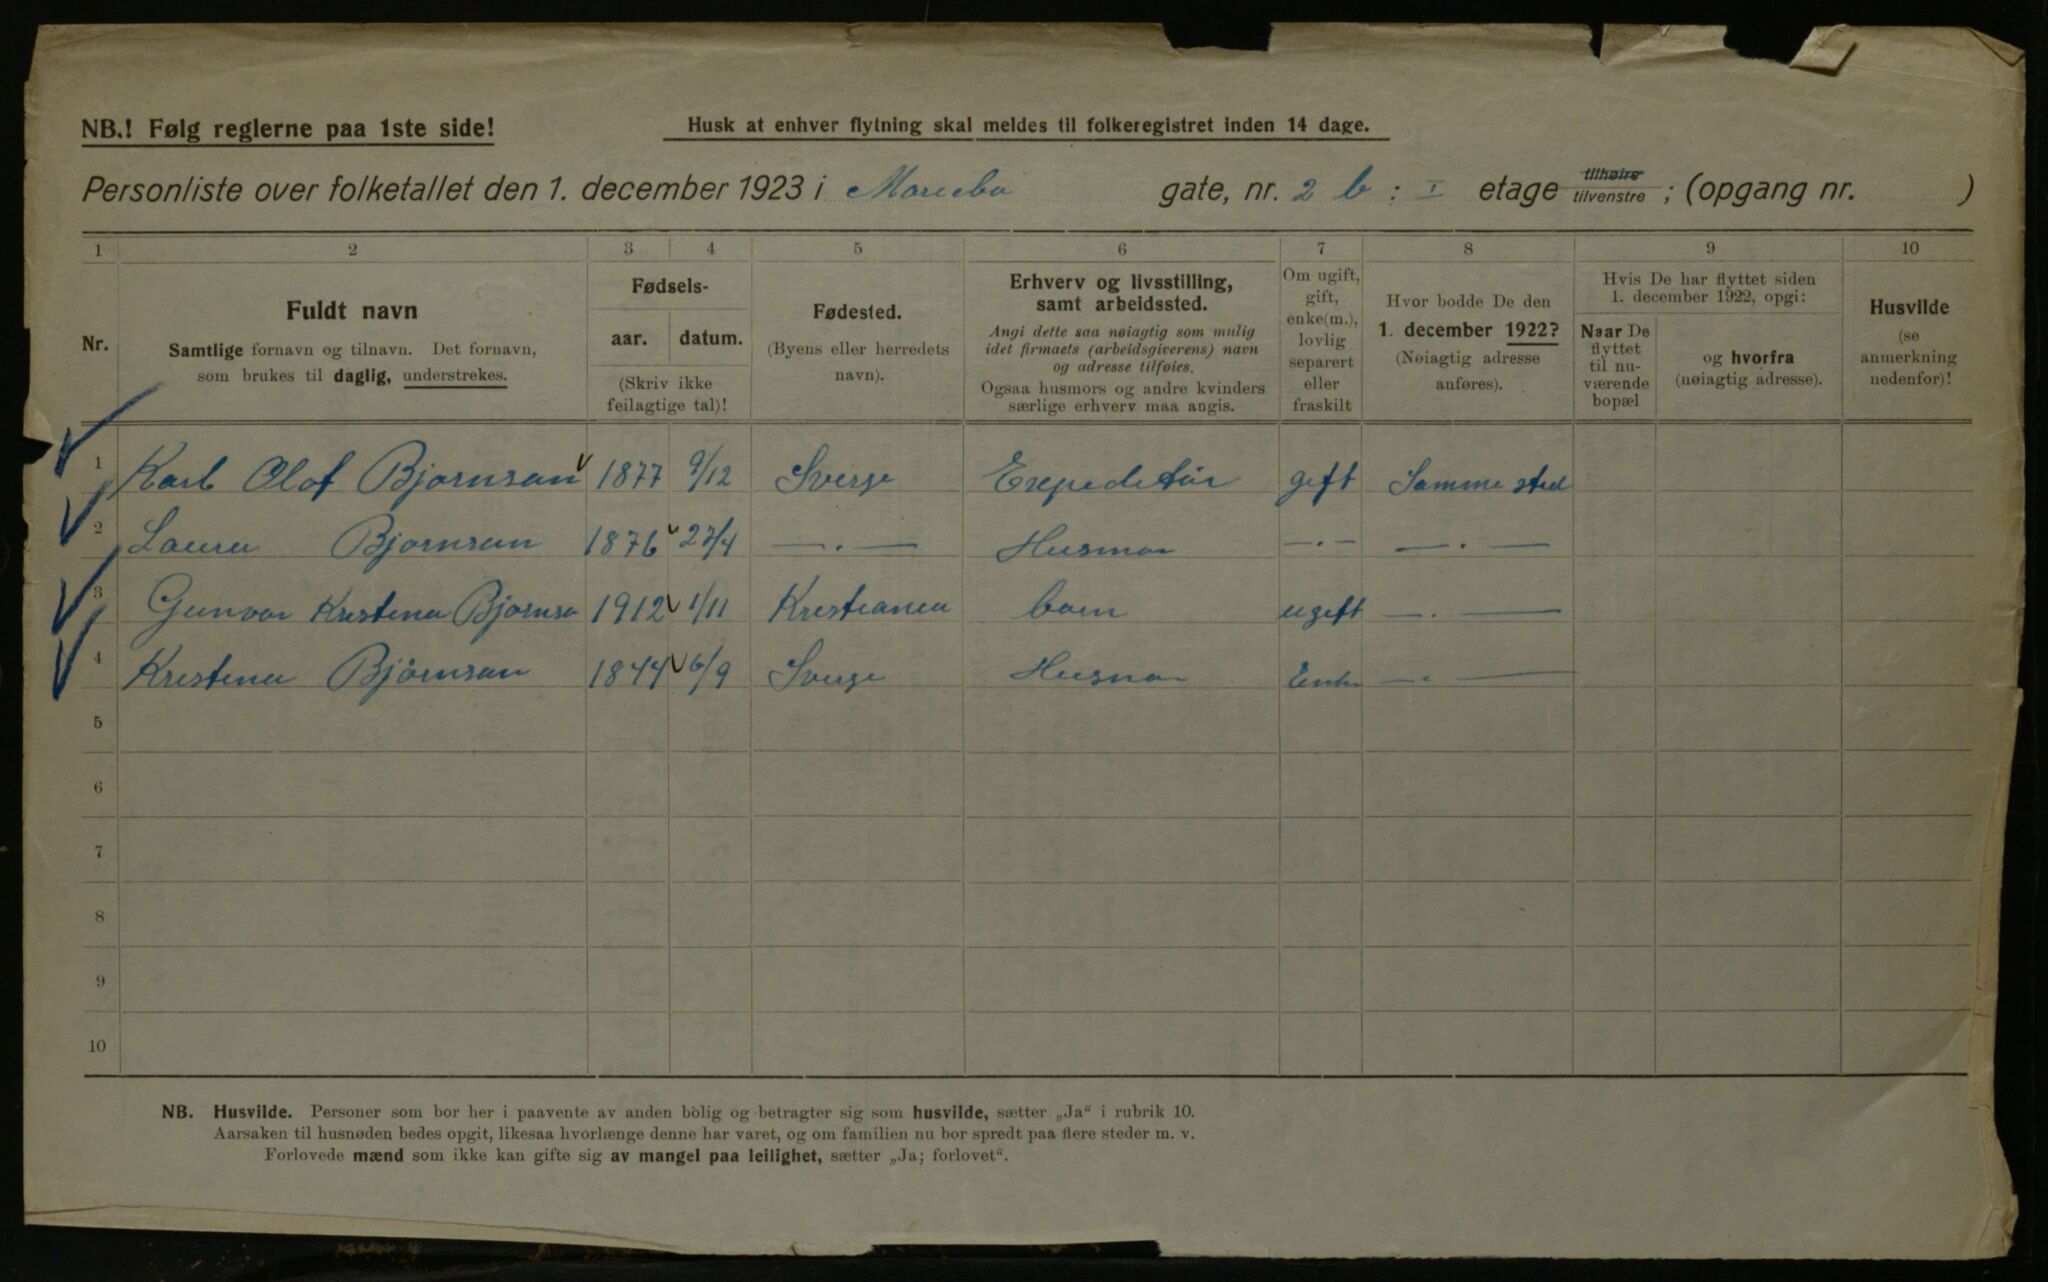 NB.! Følg reglerne paa 1ste side!
Husk at enhver flytning skal meldes til folkeregistret inden 14 dage.
Personliste over folketallet den 1. december 1923 i Mariebo gate, nr. 2 b : I etage tilhøire tilvenstre ; (opgang nr. )
1 2 3 4 5 6 7 8 9 10
Nr.
Fuldt navn
Samtlige fornavn og tilnavn. Det fornavn,
som brukes til daglig, understrekes.
Fødsels-
aar. datum.
(Skriv ikke
feilagtige tal)!
Fødested.
(Byens eller herredets
navn).
Erhverv og livsstilling,
samt arbeidssted.
Angi dette saa nøiagtig som mulig
idet firmaets (arbeidsgiverens) navn
og adresse tilføies.
Ogsaa husmors og andre kvinders
særlige erhverv maa angis.
Om ugift,
gift,
enke(m.),
lovlig
separert
eller
fraskilt
Hvor bodde De den
1. december 1922?
(Nøiagtig adresse
anføres).
Hvis De har flyttet siden
1. december 1922, opgi:
Naar De
flyttet
til nu-
værende
bopæl
og hvorfra
(nøiagtig adresse).
Husvilde
(se
anmerkning
nedenfor)!
1 Karl Olof Bjørnson 1877 9/12 Sverge Expeditør gift Samme sted
2 Laura Bjørnson 1876 27/4 —.— Husmor —.— —.—
3 Gunvor Kristina Bjørnso 1912 1/11 Kristiania barn ugift —.—
4 Kristina Bjørnson 1844 6/9 Sverge Husmor Enke —.—
5
6
7
8
9
10
NB. Husvilde. Personer som bor her i paavente av anden bolig og betragter sig som husvilde, sætter „Ja“ i rubrik 10.
Aarsaken til husnøden bedes opgit, likesaa hvorlænge denne har varet, og om familien nu bor spredt paa flere steder m. v.
Forlovede mænd som ikke kan gifte sig av mangel paa leilighet, sætter „Ja; forlovet“.